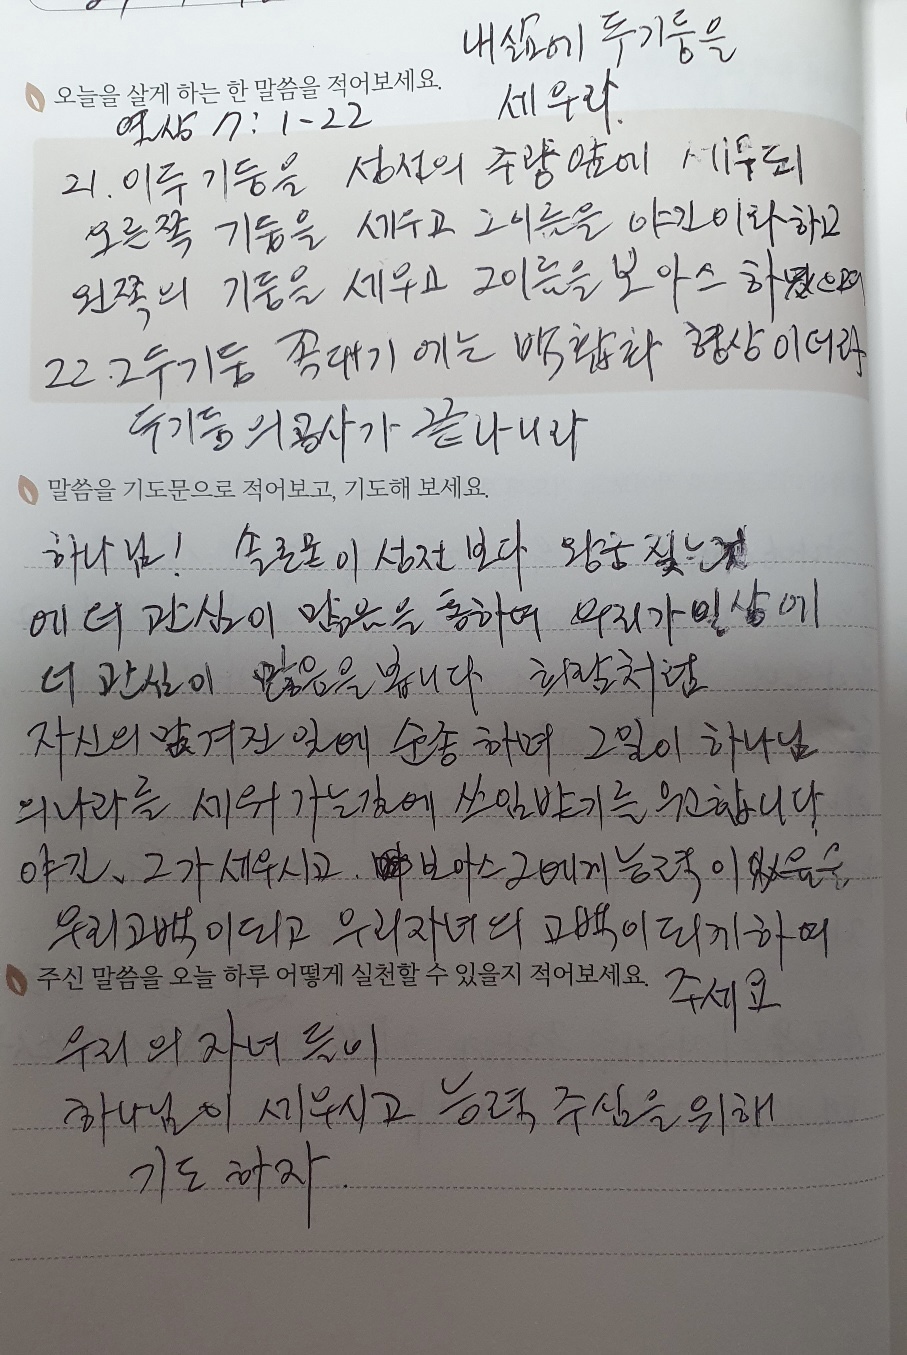 내 삶에 두기둥을
오늘을 살게 하는 한 말씀을 적어보세요.
세우라.
열상 7:1-22
21. 이두 기둥을 성전의 주랑 앞에 세우되
오른쪽 기둥을 세우고 그이름을 야긴이라 하고
왼쪽의 기둥을 세우고 그이름을 보아스 하였으며
22. 그두기둥 꼭대기에는 백합화 형상이더라
두기둥의 공사가 끝나니라
말씀을 기도문으로 적어보고, 기도해 보세요.
하나님! 솔로몬이 성전보다 왕궁 짓는것
에 더 관심이 많음을 통하며 우리가 일상에
더 관심이 많음을 봅니다 히람처럼
자신의 맡겨진 일에 순종하며 그일이 하나님
의나라를 세워가는길에 쓰임받기를 원합니다
야긴, 그가 세우시고, 보아스 그에게 능력이 있음을
우리고백이되고 우리자녀의 고백이되게하여
주신 말씀을 오늘 하루 어떻게 실천할 수 있을지 적어보세요.
주세요
우리의 자녀들이
하나님이 세우시고 능력 주심을 위해
기도하자.